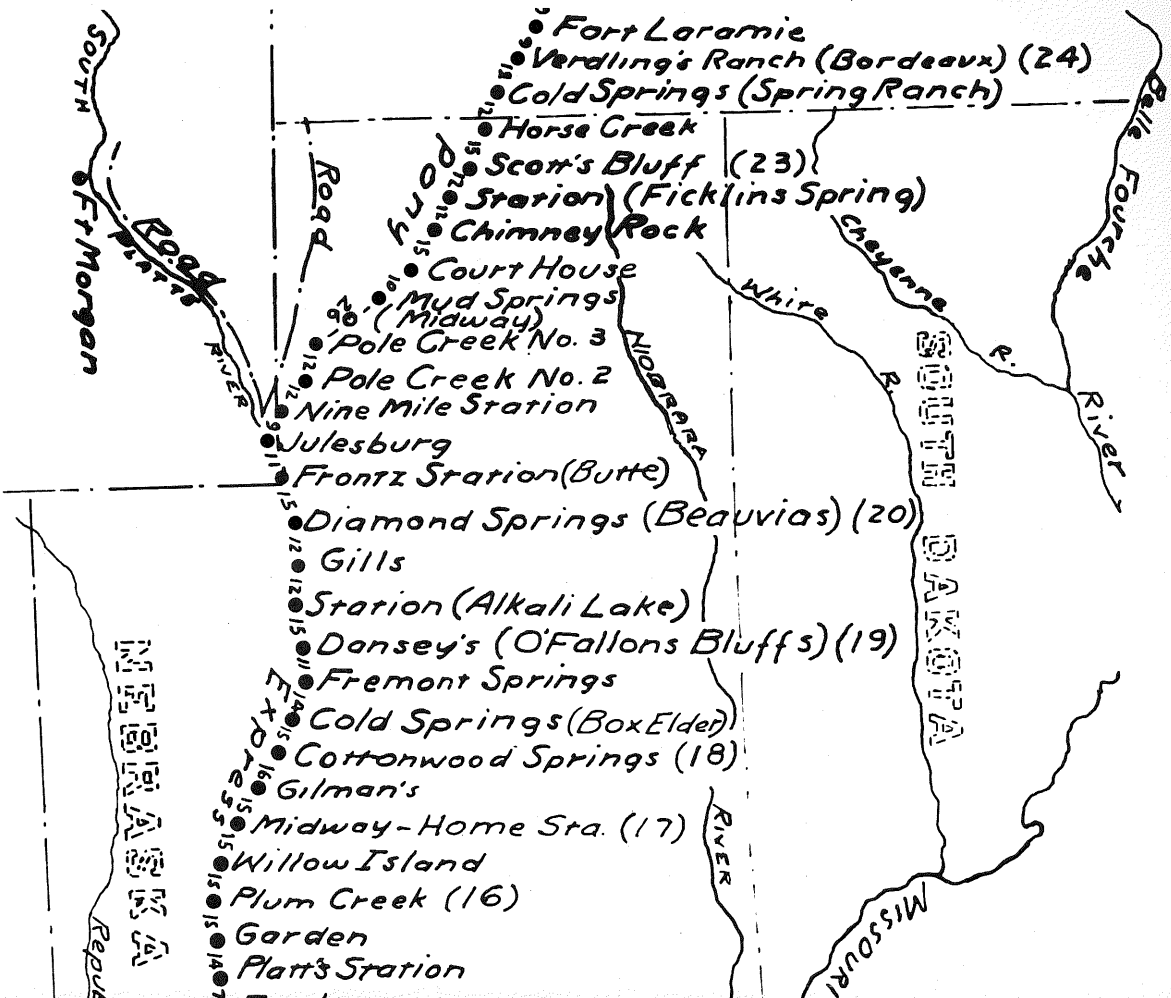 9
Fort Laramie
9
Verdling's Ranch (Bordeaux) (24)
12
Cold Springs (Spring Ranch)
12
Horse Creek
15
Scott's Bluff (23)
12
Station (Ficklins Spring)
12
Chimney Rock
15
Court House
10
Mud Springs
(Midway)
26
Pole Creek No. 3
12
Pole Creek No. 2
12
Nine Mile Station
9
Julesburg
11
Frontz Station (Butte)
15
Diamond Springs (Beauvias) (20)
12
Gills
12
Station (Alkali Lake)
15
Dansey's (O'Fallons Bluffs) (19)
11
Fremont Springs
14
Cold Springs (Box Elder)
15
Cottonwood Springs (18)
16
Gilman's
15
Midway-Home Sta. (17)
15
Willow Island
15
Plum Creek (16)
15
Garden
14
Platt's Station
Pony
Express
SOUTH
PLATTE
RIVER
Road
Road
Ft Morgan
NIOBRARA
RIVER
White
R.
Cheyenne
R.
River
Belle Fourche
SOUTH DAKOTA
NEBRASKA
MISSOURI